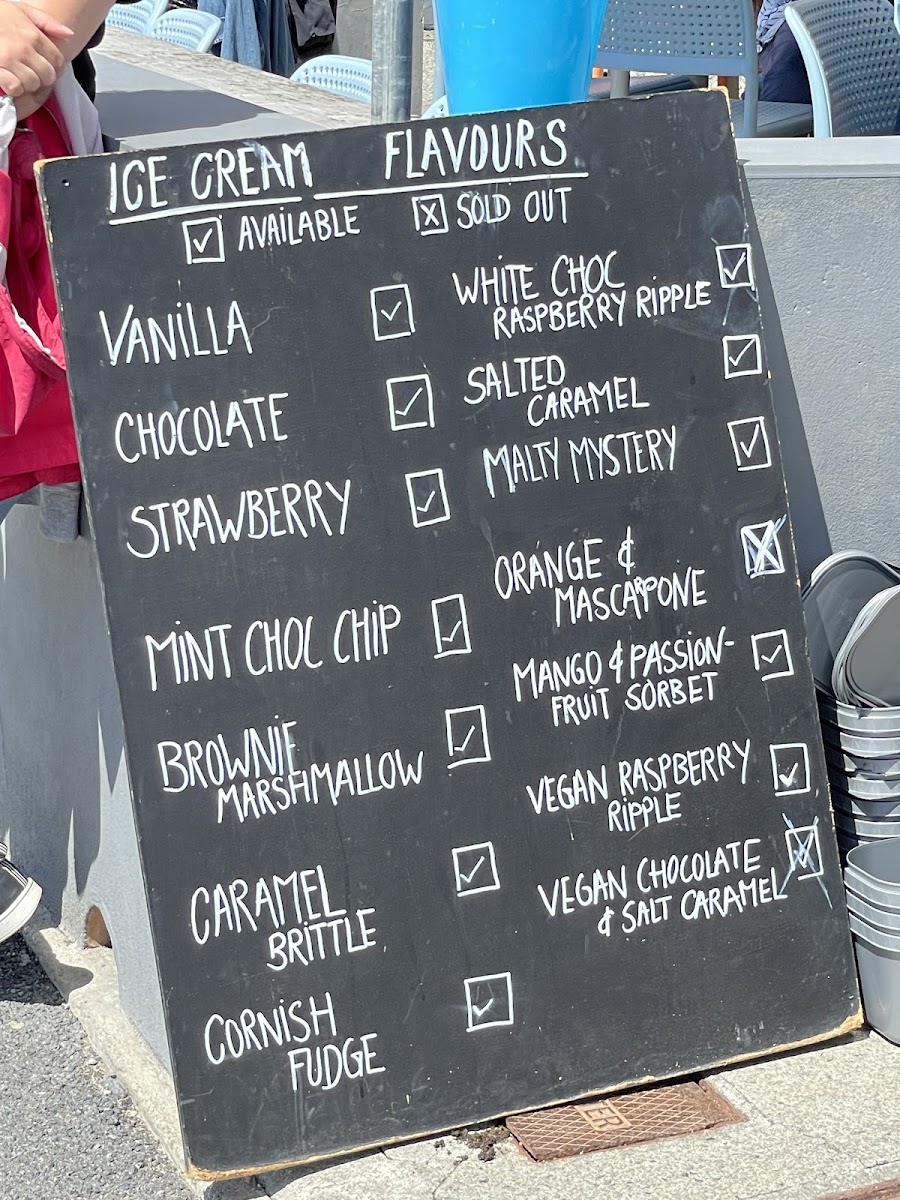 ICE CREAM FLAVOURS
☑ AVAILABLE ☒ SOLD OUT
VANILLA ☑
CHOCOLATE ☑
STRAWBERRY ☑
MINT CHOC CHIP ☑
BROWNIE
MARSHMALLOW ☑
CARAMEL
BRITTLE ☑
CORNISH
FUDGE ☑
WHITE CHOC
RASPBERRY RIPPLE ☑
SALTED
CARAMEL ☑
MALTY MYSTERY ☑
ORANGE &
MASCARPONE ☒
MANGO & PASSION-
FRUIT SORBET ☑
VEGAN RASPBERRY
RIPPLE ☑
VEGAN CHOCOLATE
& SALT CARAMEL ☒